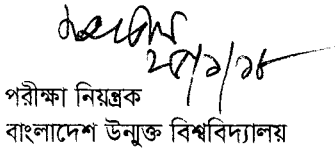 ২৫/১/১৮
পরীক্ষা নিয়ন্ত্রক
বাংলাদেশ উন্মুক্ত বিশ্ববিদ্যালয়